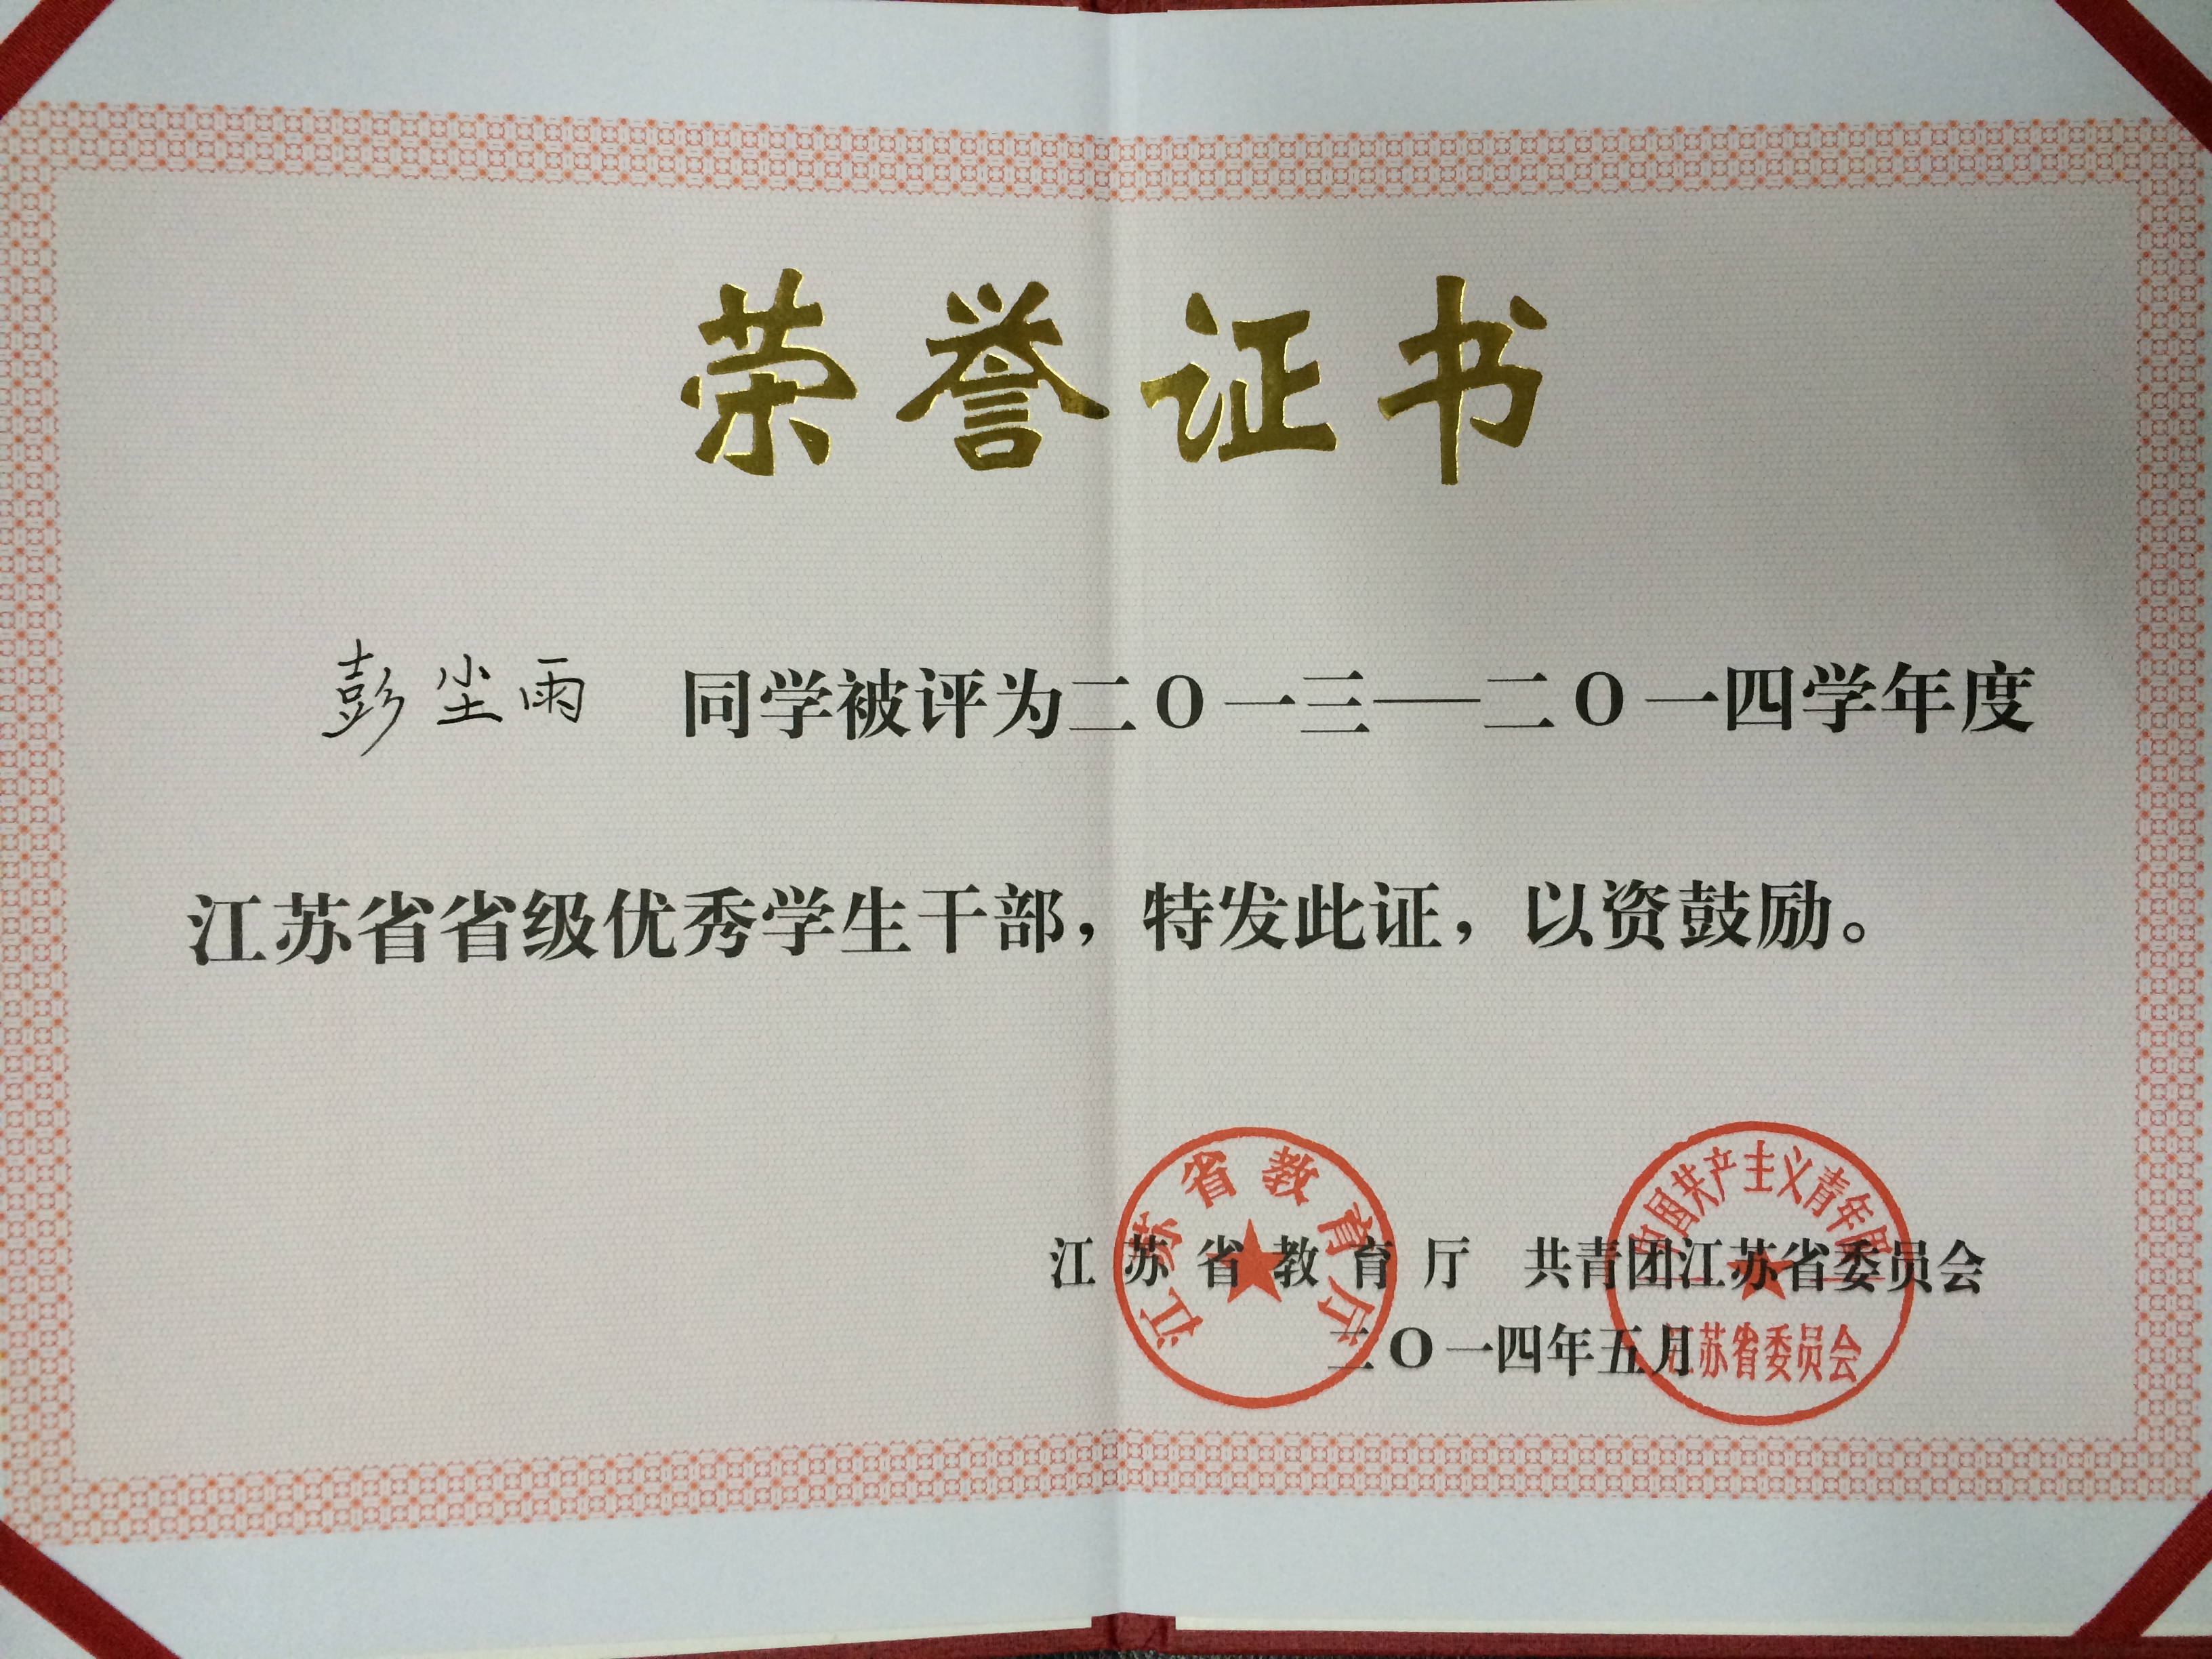 荣誉证书
彭尘雨 同学被评为二〇一三——二〇一四学年度
江苏省省级优秀学生干部，特发此证，以资鼓励。
江苏省教育厅 共青团江苏省委员会
二〇一四年五月
江苏省教育厅
中国共产主义青年团
江苏省委员会